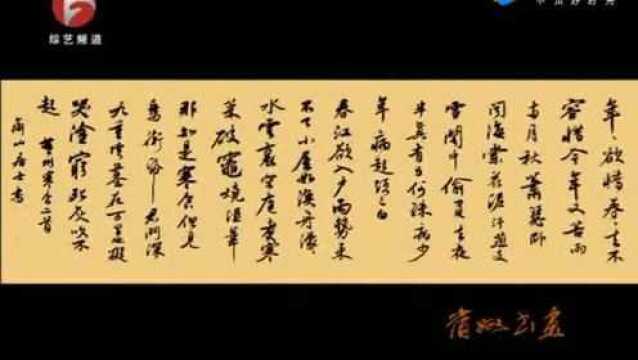 综艺频道
年々欲惜春々去不
容惜今年又苦雨
两月秋萧瑟卧
闻海棠花泥污燕支
雪闇中偷负去夜
半真有力何殊病少
年病起须已白
春江欲入户雨势来
不已小屋如渔舟濛々
水云裏空庖煮寒
菜破竈烧湿苇
那知是寒食但见
乌衔纸君门深
九重坟墓在万里拟
哭途穷死灰吹不
起 黄州寒食二首
居士书